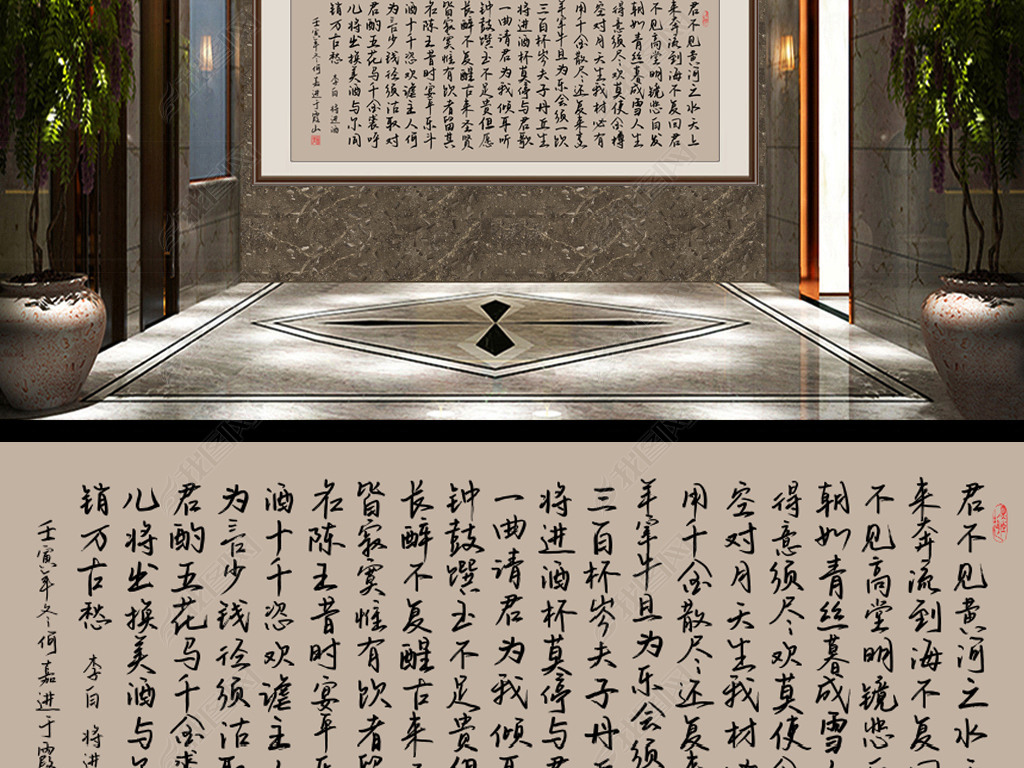 君不见黄河之水天上
来奔流到海不复回君
不见高堂明镜悲白发
朝如青丝暮成雪人生
得意须尽欢莫使金樽
空对月天生我材必有
用千金散尽还复来烹
羊宰牛且为乐会须一饮
三百杯岑夫子丹丘生
将进酒杯莫停与君歌
一曲请君为我倾耳听
钟鼓馔玉不足贵但愿
长醉不复醒古来圣贤
皆寂寞惟有饮者留其
名陈王昔时宴平乐斗
酒十千恣欢谑主人何
为言少钱径须沽取对
君酌五花马千金裘呼
儿将出换美酒与尔同
销万古愁 李白 将进酒
壬寅年冬何嘉进于霞山
君不见黄河之水
来奔流到海不复回
不见高堂明镜悲
朝如青丝暮成雪人
得意须尽欢莫使
空对月天生我材
用千金散尽还复来
羊宰牛且为乐会须
三百杯岑夫子丹
将进酒杯莫停与君
一曲请君为我倾耳
钟鼓馔玉不足贵但
长醉不复醒古来
皆寂寞惟有饮者留
名陈王昔时宴平乐
酒十千恣欢谑主人
为言少钱径须沽取
君酌五花马千金裘
儿将出换美酒与
销万古愁 李白 将进
壬寅年冬何嘉进于霞